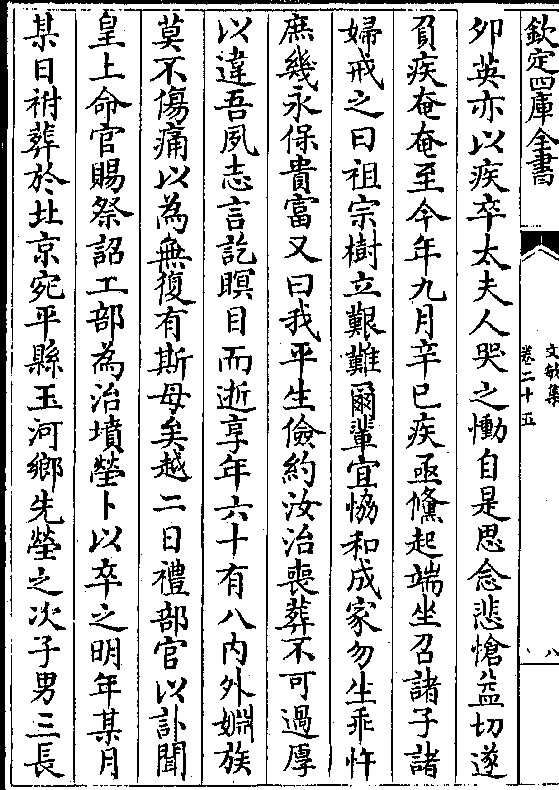 欽定四庫全書
文敏集
卷二十五
八
夘英亦以疾卒太夫人哭之慟自是思念悲愴益切遂
負疾奄奄至今年九月辛巳疾亟儵起端坐召諸子諸
婦戒之曰祖宗樹立艱難爾輩宜恊和成家勿生乖忤
庶幾永保貴富又曰我平生儉約汝治喪葬不可過厚
以違吾夙志言訖瞑目而逝享年六十有八内外婣族
莫不傷痛以為無復有斯母矣越二日禮部官以訃聞
皇上命官賜祭詔工部為治墳塋卜以卒之明年某月
某日祔葬於北京宛平縣玉河鄉先塋之次子男三長